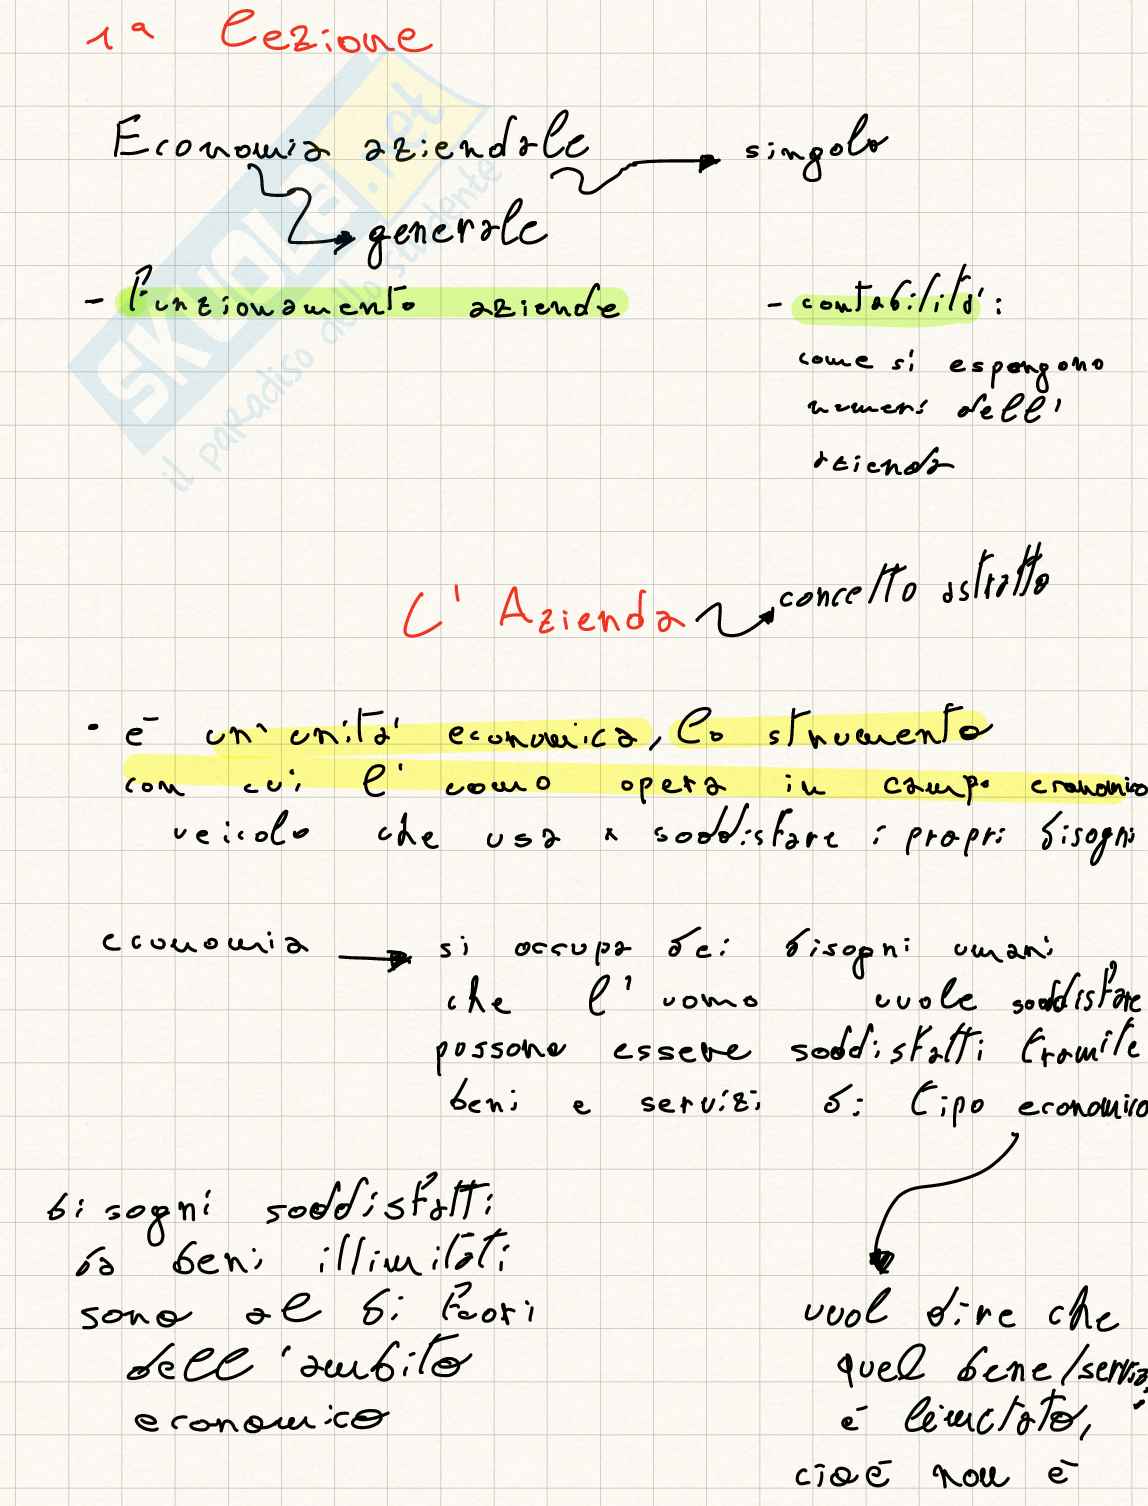 1ª lezione
Economia aziendale → singolo
→ generale
- Funzionamento aziende
- contabilità:
come si espongono
numeri dell'
azienda
L'Azienda → concetto astratto
• è un'unità economica, lo strumento
con cui l'uomo opera in campo economico
veicolo che usa x soddisfare i propri bisogni
economia → si occupa dei bisogni umani
che l'uomo vuole soddisfare
possono essere soddisfatti tramite
beni e servizi di tipo economico
bisogni soddisfatti
da beni illimitati
sono al di fuori
dell'ambito
economico
vuol dire che
quel bene/servizi
è limitato,
cioè non è
SKUOLA.net
il paradiso dello studente